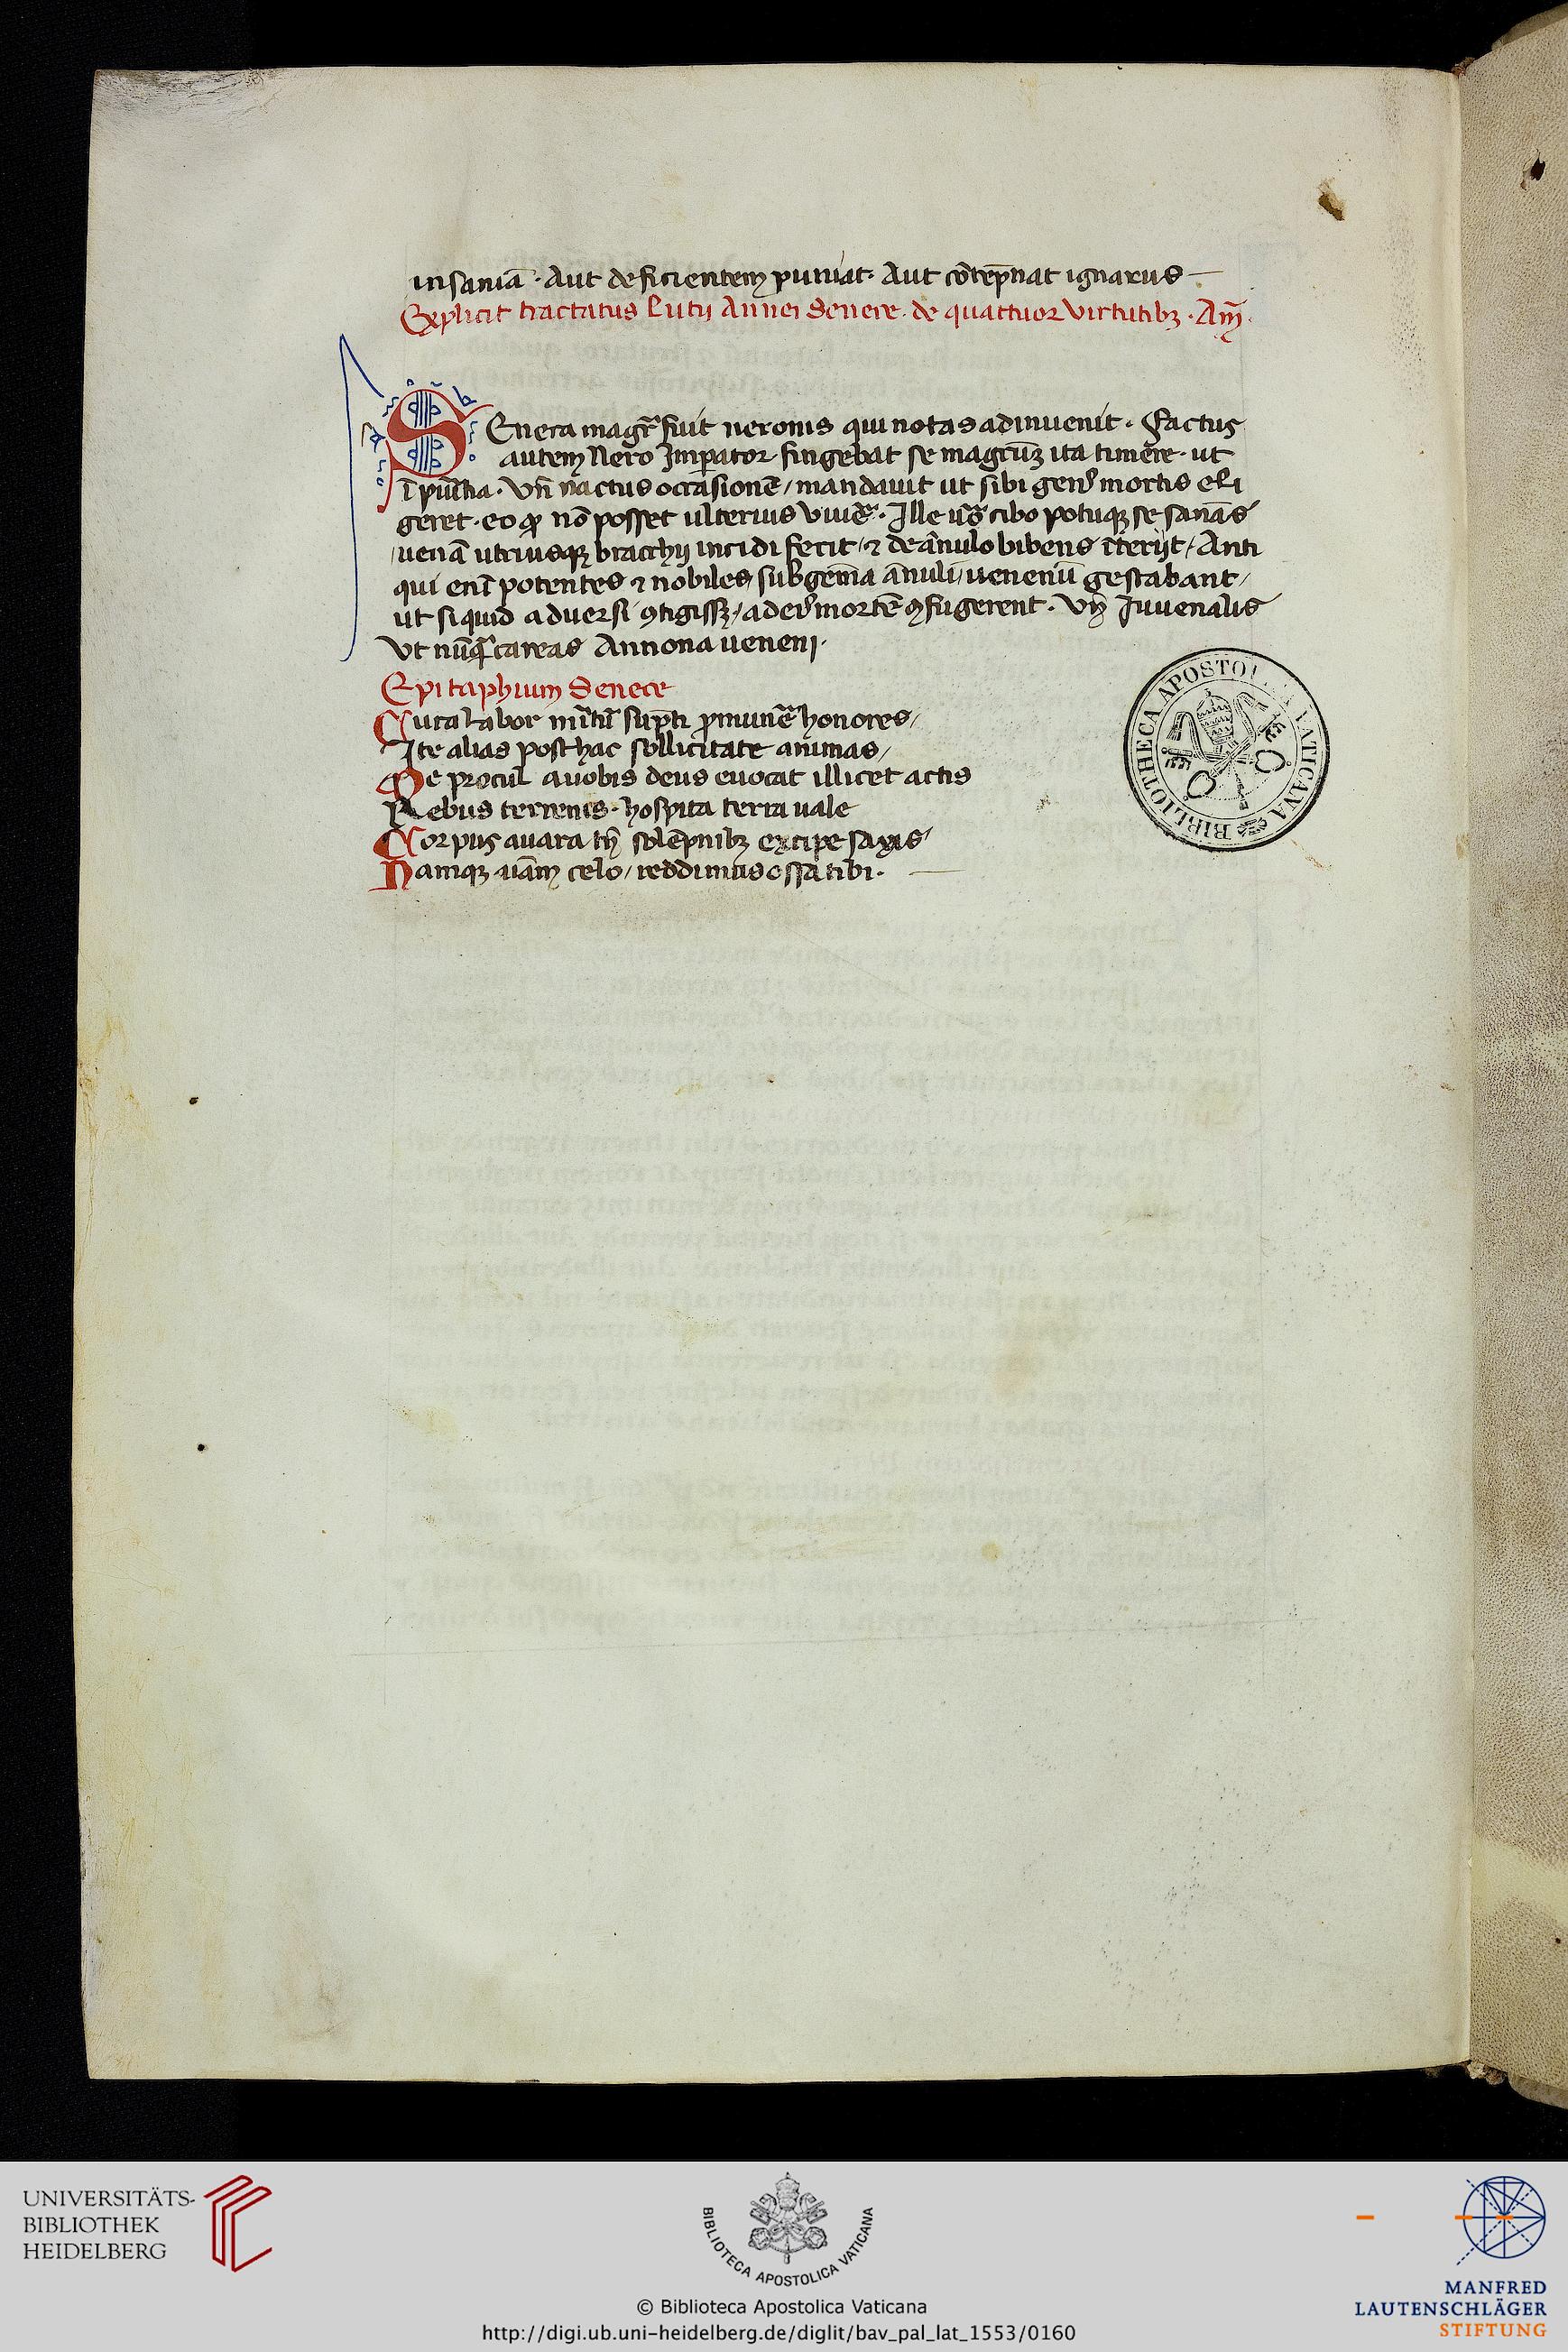 insaniā · Aut deficientem puniat · Aut cōtēpnat ignarus —
Explicit tractatus Lutij Annei Senece · de quattuor virtutibꝫ · Am̄ ·
SEneca magr̄ fuit neronis qui notas adinuenit · Factus
autem Nero Imperator fingebat se magrūꝫ ita timere · ut
ī pueritia · Vn̄ nactus occasionē / mandauit ut sibi genꝰ mortis eli
geret · eo ꝙ nō posset ulterius viuere · Ille cibo potuqꝫ se sanās
uenā utriusqꝫ bracchij incidi fecit / ⁊ de ānulo bibens īterijt / Anti
qui enī potentes ⁊ nobiles / sub gemā ānuli / uenenū gestabant /
ut si quid aduersi ꝯtigissꝫ / ad eiꝰ mortē ꝯfugerent · Vn̄ Iuuenalis
Vt nūꝙ careas Annona ueneni ·
Epitaphium Senece
Cura labor mitū sūpti ꝓ munē honores /
Ite alias posthac sollicitate animas /
Me procul a uobis deus euocat illicet actis
Rebus terrenis · hospita terra uale
Corpus auara tn̄ solēpnibꝫ excipe saxis
Namqꝫ aīam celo / reddimus ossa tibi · —
BIBLIOTHECA APOSTOLICA VATICANA
UNIVERSITÄTS-
BIBLIOTHEK
HEIDELBERG
BIBLIOTECA APOSTOLICA VATICANA
© Biblioteca Apostolica Vaticana
http://digi.ub.uni-heidelberg.de/diglit/bav_pal_lat_1553/0160
MANFRED
LAUTENSCHLÄGER
STIFTUNG